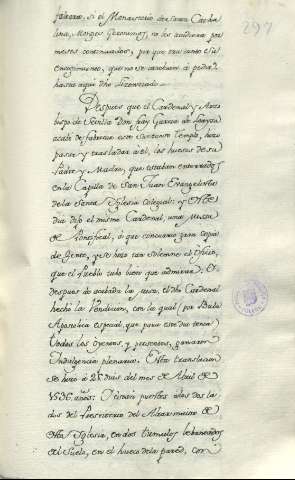 297
faltara, si el Monasterio de Santa Catha
lina, Monges Geronimos, no les acudiera por
meses continuados, por que era tanto el su
encogimiento, que no se atrevian à pedir,
hasta aquí dho Licenciado.
Despues que el Cardenal y Arzo
bispo de Sevilla Don fray Garcia de Loaysa
acabó de fabricar este suntuoso Templo, hizo
pasar y trasladar à él, los huesos de su
Padre y Madre, que estaban enterrados
en la Capilla de San Juan Evangelista
de la Santa Iglesia colegial: y este
dia dijo el mismo Cardenal, una Misa
de Pontifical, à que concurrió gran copia
de Gente, y se hizo tan solemne el oficio,
que el Pueblo tubo bien que admirar. Y
despues de acabada la misa, el dho Cardenal
hechó la Vendicion, con la qual (por Bula
Apostolica especial, que para esto dio tenia)
todos los oyentes, y presentes, ganaron
Indulgencia plenaria. Esta translacion
se hizo à 25 dias del mes de Abril de
años. Y estan puestos a los dos la
dos del Presbiterio del Altar mayor de
esta Iglesia, en dos tumulos lebantados
del Suelo, en el hueco de la pared, con